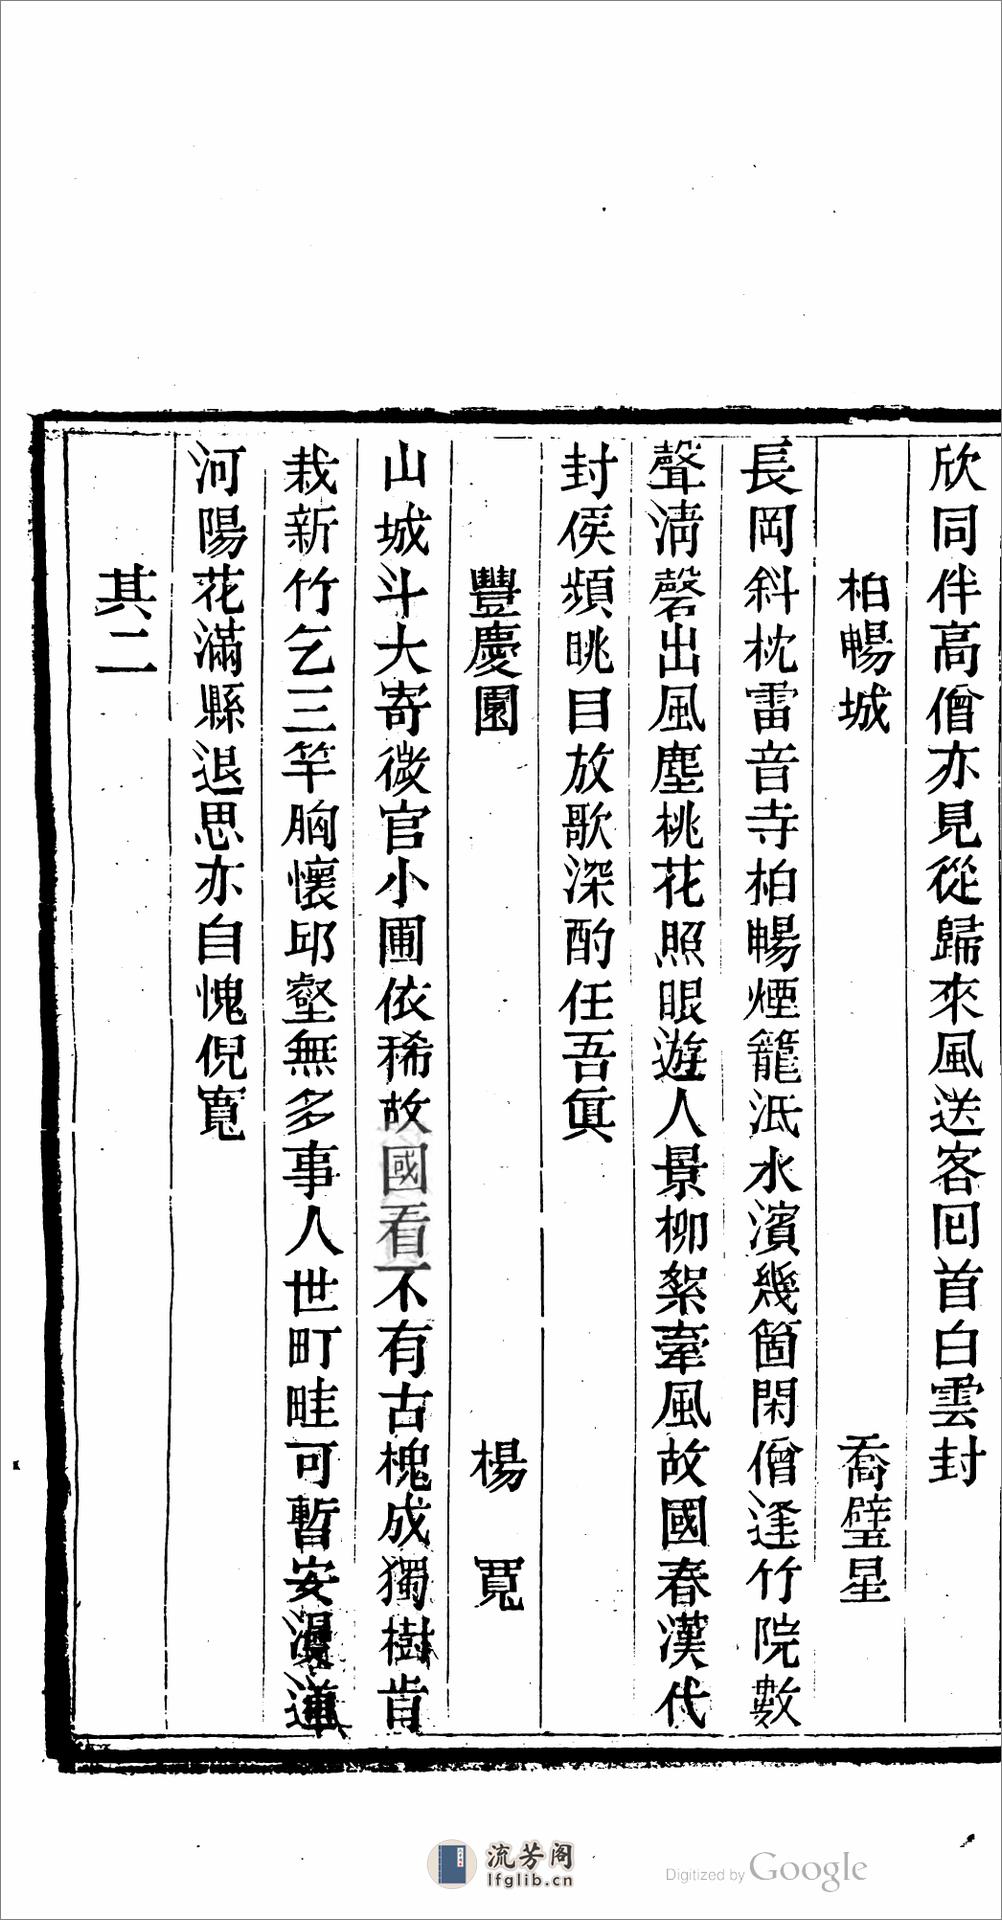 欣同伴高僧亦見從歸來風送客囘首白雲封
柏暢城　喬璧星
長岡斜枕雷音寺柏暢煙籠泜水濱幾箇閑僧逢竹院數
聲淸磬出風塵桃花照眼遊人景柳絮牽風故國春漢代
封侯頻眺目放歌深酌任吾眞
豐慶園　楊　覔
山城斗大寄微官小圃依稀故國看不有古槐成獨樹肯
栽新竹乞三竿胸懷邱壑無多事人世町畦可暫安漫
河陽花滿縣退思亦自愧倪寬
其二
流芳阁
lfglib.cn
Digitized by Google